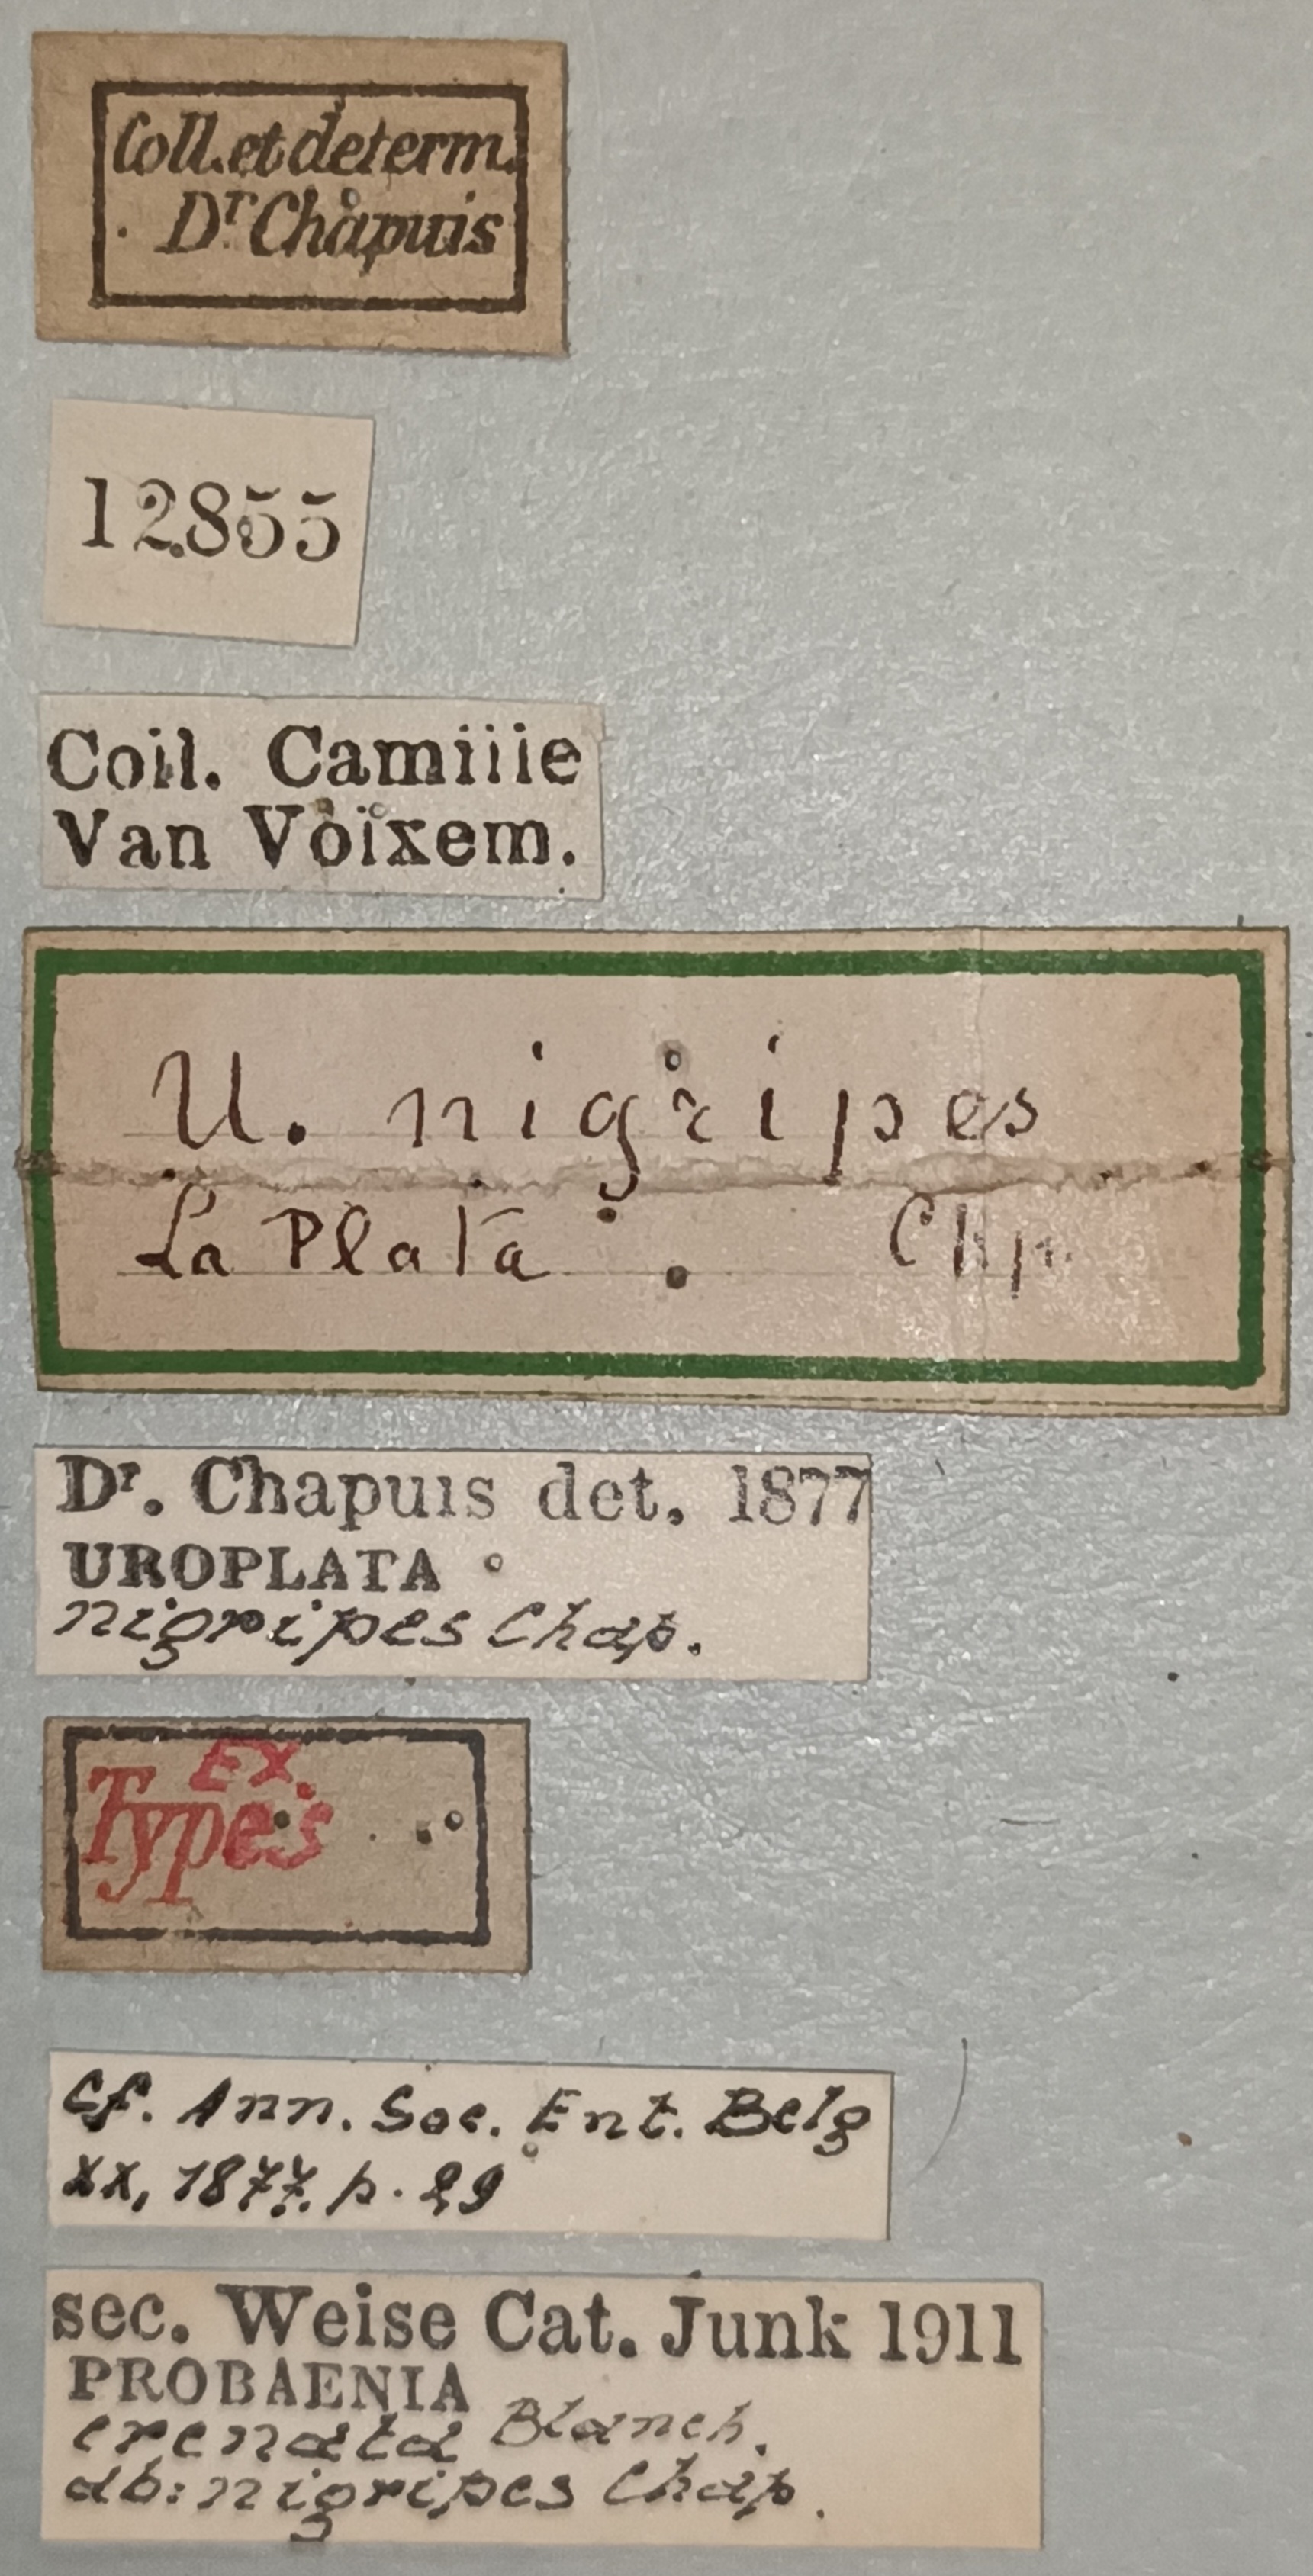 Coll. et determ.
Dr Chapuis
12855
Coll. Camille
Van Volxem.
U. nigripes
La Plata . Chp.
Dr. Chapuis det. 1877
UROPLATA
nigripes Chap.
Ex.
Types
Cf. Ann. Soc. Ent. Belg
XX, 1877. p. 29
sec. Weise Cat. Junk 1911
PROBAENIA
crenata Blanch.
ab: nigripes Chap.